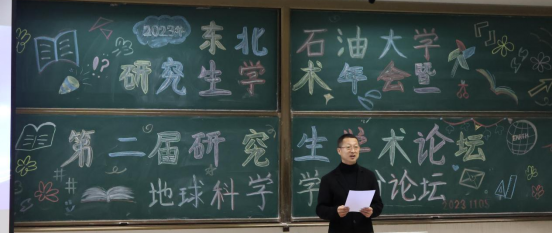 2023年
东北石油大学
研究生学术年会暨
第二届研究生学术论坛
地球科学学分论坛
2023 1105